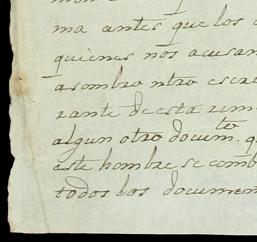 ma antes que los
quienes nos acusan
asombro ntro escri
rante de esta rem
algun otro docum.to q
este hombre se comb
todos los documen